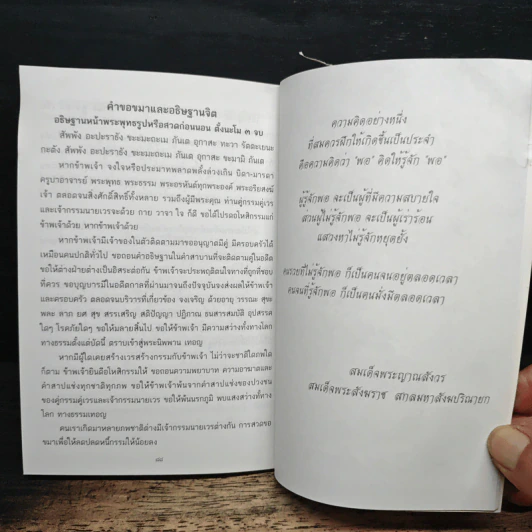 คำขอขมาและอธิษฐานจิต
อธิษฐานหน้าพระพุทธรูปหรือสวดก่อนนอน ตั้งนะโม ๓ จบ
สัพพัง อะปะราธัง ขะมะถะเม ภันเต อุกาสะ ทะวา รัตตะเยนะ
กะตัง สัพพัง อะปะราธัง ขะมะถะเม ภันเต อุกาสะ ขะมามิ ภันเต
หากข้าพเจ้า จงใจหรือประมาทพลาดพลั้งล่วงเกิน บิดา-มารดา
ครูบาอาจารย์ พระพุทธ พระธรรม พระอรหันต์ทุกพระองค์ พระอริยสงฆ์
เจ้า ตลอดจนสิ่งศักดิ์สิทธิ์ทั้งหลาย รวมถึงผู้มีพระคุณ ท่านคู่กรรมคู่เวร
และเจ้ากรรมนายเวรจะด้วย กาย วาจา ใจ ก็ดี ขอได้โปรดอโหสิกรรมแก่
ข้าพเจ้าด้วย หากข้าพเจ้าด้วย
หากข้าพเจ้ามีเจ้าของในตัวติดตามมาขออนุญาตมีคู่ มีครอบครัวได้
เหมือนคนปกติทั่วไป ขอถอนคำอธิษฐานในคำสาบานที่จะติดตามคู่ในอดีต
ขอให้ต่างฝ่ายต่างเป็นอิสระต่อกัน ข้าพเจ้าจะประพฤติตนในทางที่ถูกที่ชอบ
ที่ควร ขอบุญบารมีในอดีตกาลที่ผ่านมาจนถึงปัจจุบันจงส่งผลให้ข้าพเจ้า
และครอบครัว ตลอดจนบริวารที่เกี่ยวข้อง จงเจริญ ด้วยอายุ วรรณะ สุขะ
พละ ลาภ ยศ สุข สรรเสริญ สติปัญญา ปฏิภาณ ธนสารสมบัติ อุปสรรค
ใดๆ โรคภัยใดๆ ขอให้มลายสิ้นไป ขอให้ข้าพเจ้า มีความสว่างทั้งทางโลก
ทางธรรมตั้งแต่บัดนี้ ตราบเข้าสู่พระนิพพาน เทอญ
หากมีผู้ใดเคยสร้างเวรสร้างกรรมกับข้าพเจ้า ไม่ว่าจะชาติใดภพใด
ก็ตาม ข้าพเจ้ายินดีอโหสิกรรมให้ ขอถอนความพยาบาท ความอาฆาตและ
คำสาปแช่งทุกชาติทุกภพ ขอให้ข้าพเจ้าพ้นจากคำสาปแช่งของปวงชน
ของคู่กรรมคู่เวรและเจ้ากรรมนายเวร ขอให้พ้นนรกภูมิ พบแสงสว่างทั้งทาง
โลก ทางธรรมเทอญ
คนเราเกิดมาหลายภพชาติต่างมีเจ้ากรรมนายเวรต่างกัน การสวดขอ
ขมาเพื่อให้ลดปลดหนี้กรรมให้น้อยลง
ความคิดอย่างหนึ่ง
ที่สมควรฝึกให้เกิดขึ้นเป็นประจำ
คือความคิดว่า 'พอ' คิดให้รู้จัก 'พอ'
ผู้รู้จักพอ จะเป็นผู้ที่มีความสบายใจ
ส่วนผู้ไม่รู้จักพอ จะเป็นผู้เร่าร้อน
แสวงหาไม่รู้จักหยุดยั้ง
คนรวยที่ไม่รู้จักพอ ก็เป็นคนจนอยู่ตลอดเวลา
คนจนที่รู้จักพอ ก็เป็นคนมั่งมีตลอดเวลา
สมเด็จพระญาณสังวร
สมเด็จพระสังฆราช สกลมหาสังฆปริณายก